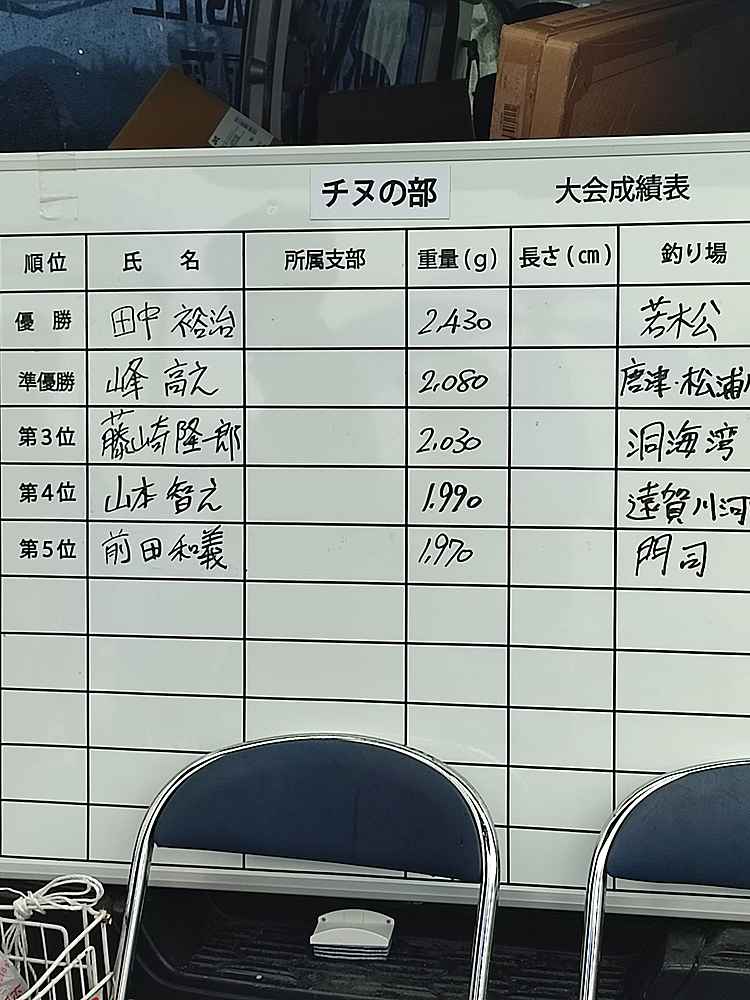 チヌの部 大会成績表
順位 氏名 所属支部 重量(g) 長さ(㎝) 釣り場
優勝 田中 裕治 2,430 若松公
準優勝 峰 高え 2,080 唐津・松浦川
第3位 藤崎隆一郎 2,030 洞海湾
第4位 山本智え 1.990 遠賀川河
第5位 前田和義 1,970 門司